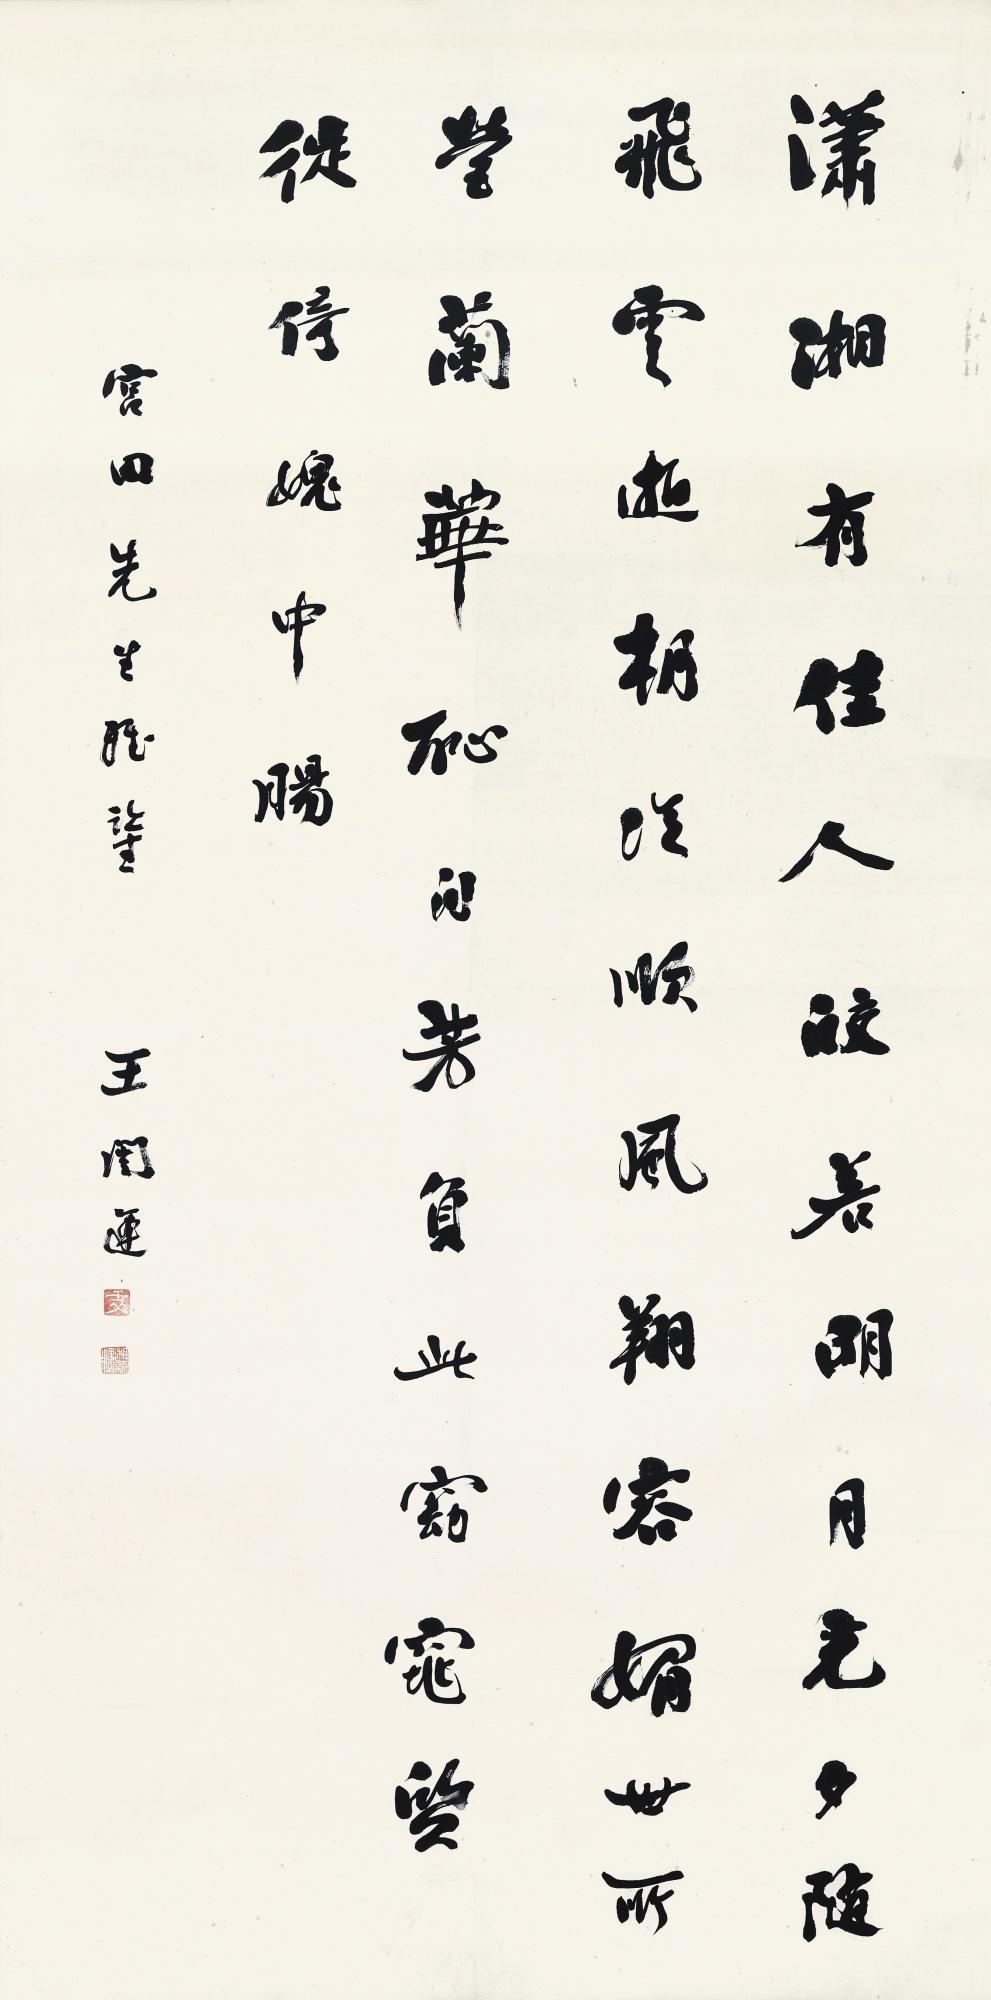 潇湘有佳人皎若明月光夕随
飛雲逝朝從順風翔容媚世所
瑩蘭華恥自芳負此窈窕質
徙倚媿中腸
宫田先生雅鑒
王闓運